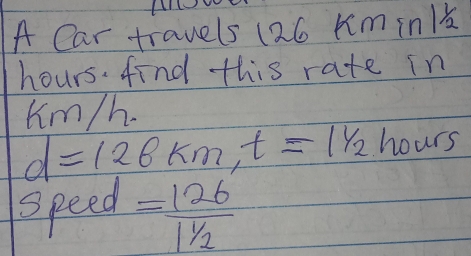 A Car travels 126 Km in 1½
hours. find this rate in
Km/h.
d = 126 Km, t = 1½ hours
Speed = 126
1½